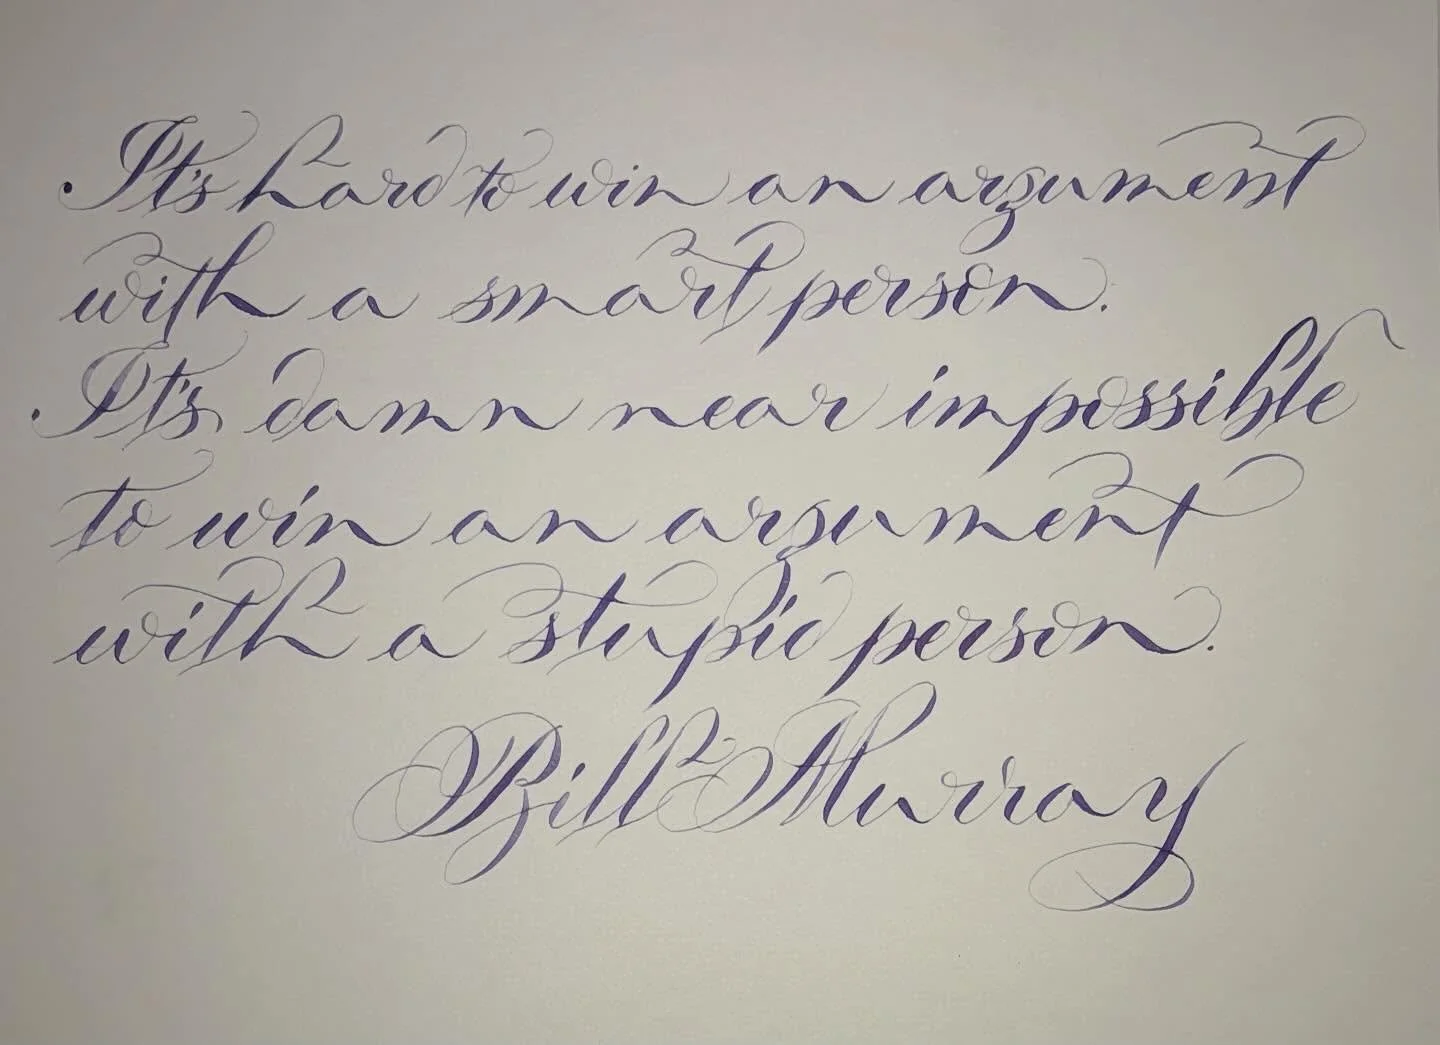 It's hard to win an argument
with a smart person.
It's damn near impossible
to win an argument
with a stupid person.
Bill Murray